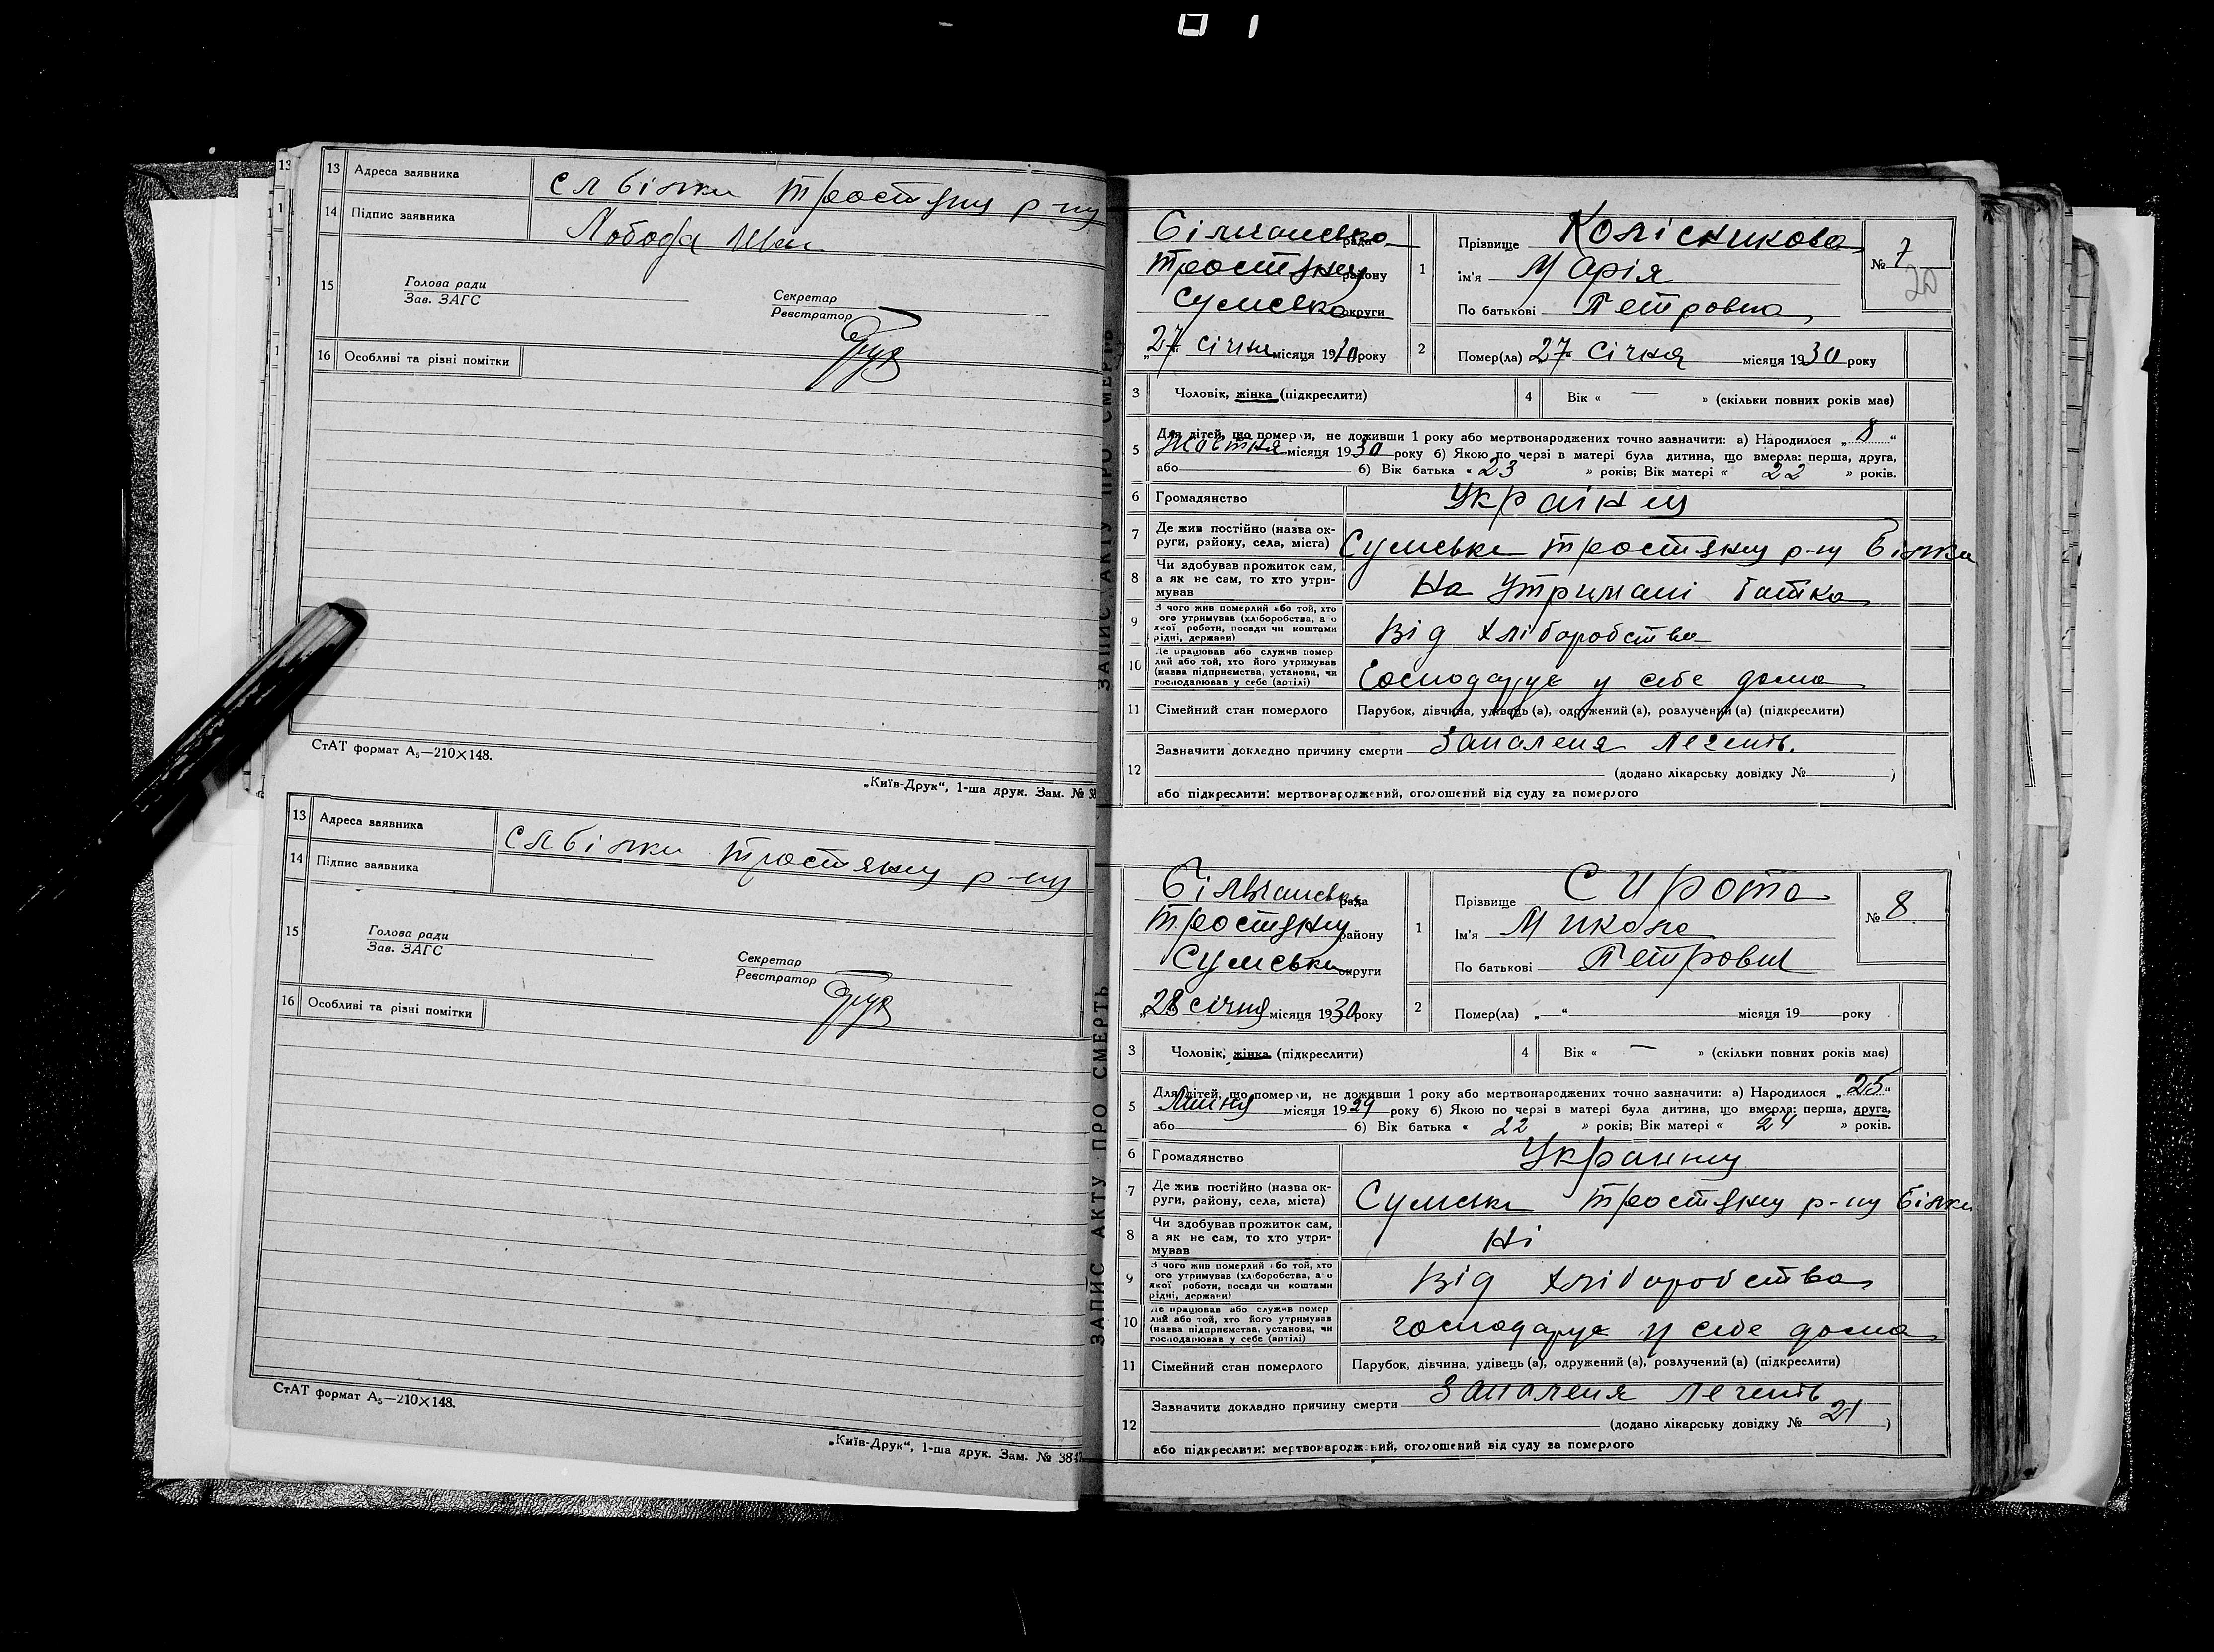 13 Адреса заявника сл білки тростянц р-ну
14 Підпис заявника Лобода Іван
15 Голова ради
Зав. ЗАГС
Секретар
Реєстратор
16 Особливі та різні помітки
СтАТ формат А5—210×148.
„Київ-Друк“, 1-ша друк. Зам. № 38
13 Адреса заявника сл білки тростянц р-ну
14 Підпис заявника
15 Голова ради
Зав. ЗАГС
Секретар
Реєстратор
16 Особливі та різні помітки
СтАТ формат А5—210×148.
„Київ-Друк“, 1-ша друк. Зам. № 3847
ЗАПИС АКТУ ПРО СМЕРТЬ
ЗАПИС АКТУ ПРО СМЕРТЬ
Більчанська рада
Тростянц району
Сумська округи
„27“ січня місяця 1930 року
1 Прізвище Колісникова
Ім'я Марія
По батькові Петровна
№ 7
20
2 Помер(ла) 27 Січня місяця 1930 року
3 Чоловік, жінка (підкреслити)
4 Вік « — » (скільки повних років має)
5 Для дітей, що померли, не доживши 1 року або мертвонароджених точно зазначити: а) Народилося „8“
Жовтня місяця 1930 року б) Якою по черзі в матері була дитина, що вмерла: перша, друга,
або б) Вік батька « 23 » років; Вік матері « 22 » років.
6 Громадянство Українц
7 Де жив постійно (назва ок-
руги, району, села, міста) Сумське тростянц р-ну Білки
8 Чи здобував прожиток сам,
а як не сам, то хто утри-
мував На утримані батька
9 З чого жив померлий або той, хто
ого утримував (хліборобства, або
якої роботи, посади чи коштами
рідні, держави) Від хліборобства
10 Де працював або служив помер
лий або той, хто його утримував
(назва підприємства, установи, чи
господарював у себе (артілі) Господарує у себе дома
11 Сімейний стан померлого Парубок, дівчина, удівець (а), одружений (а), розлучений (а) (підкреслити)
12 Зазначити докладно причину смерти Запаленя Легень.
(додано лікарську довідку № )
або підкреслити: мертвонароджений, оголошений від суду за померлого
Більчанська рада
Тростянц району
Сумська округи
„28 січня місяця 1930 року
1 Прізвище Сирота
Ім'я Микола
По батькові Петрович
№ 8
2 Помер(ла) „—“ місяця 19 року
3 Чоловік, жінка (підкреслити)
4 Вік « — » (скільки повних років має)
5 Для дітей, що померли, не доживши 1 року або мертвонароджених точно зазначити: а) Народилося „25“
Липня місяця 1929 року б) Якою по черзі в матері була дитина, що вмерла: перша, друга,
або б) Вік батька « 22 » років; Вік матері « 24 » років.
6 Громадянство Украинц
7 Де жив постійно (назва ок-
руги, району, села, міста) Сумське тростянц р-ну Білки
8 Чи здобував прожиток сам,
а як не сам, то хто утри-
мував Ні
9 З чого жив померлий або той, хто
ого утримував (хліборобства, або
якої роботи, посади чи коштами
рідні, держави) Від хліборобства
10 Де працював або служив помер
лий або той, хто його утримував
(назва підприємства, установи, чи
господарював у себе (артілі) господарує у себе дома
11 Сімейний стан померлого Парубок, дівчина, удівець (а), одружений (а), розлучений (а) (підкреслити)
12 Зазначити докладно причину смерти Запаленя легень
(додано лікарську довідку № 21 )
або підкреслити: мертвонароджений, оголошений від суду за померлого